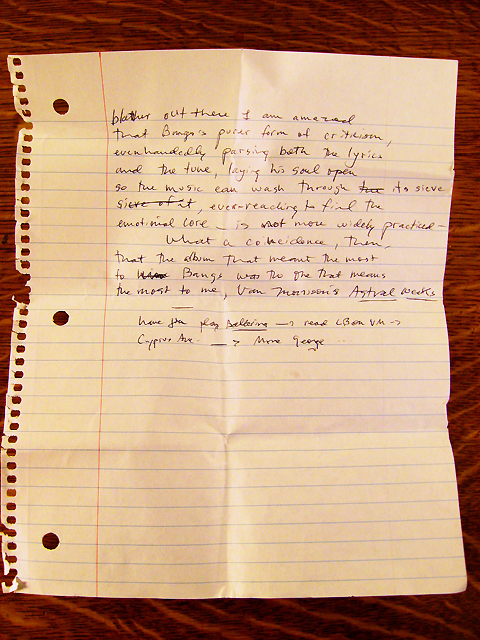 blather out there I am amazed
that Bangs's purer form of criticism,
evenhandedly parsing both the lyrics
and the tune, laying his soul open
so the music can wash through the its sieve
sieve of it, ever-reaching to find the
emotional core – is not more widely practiced –
What a coincidence, then,
that the album that meant the most
to Bangs was the one that means
the most to me, Van Morrison's Astral Weeks
have Jon play Ballerina → read LB on VM →
Cyprus Ave. → More George ...